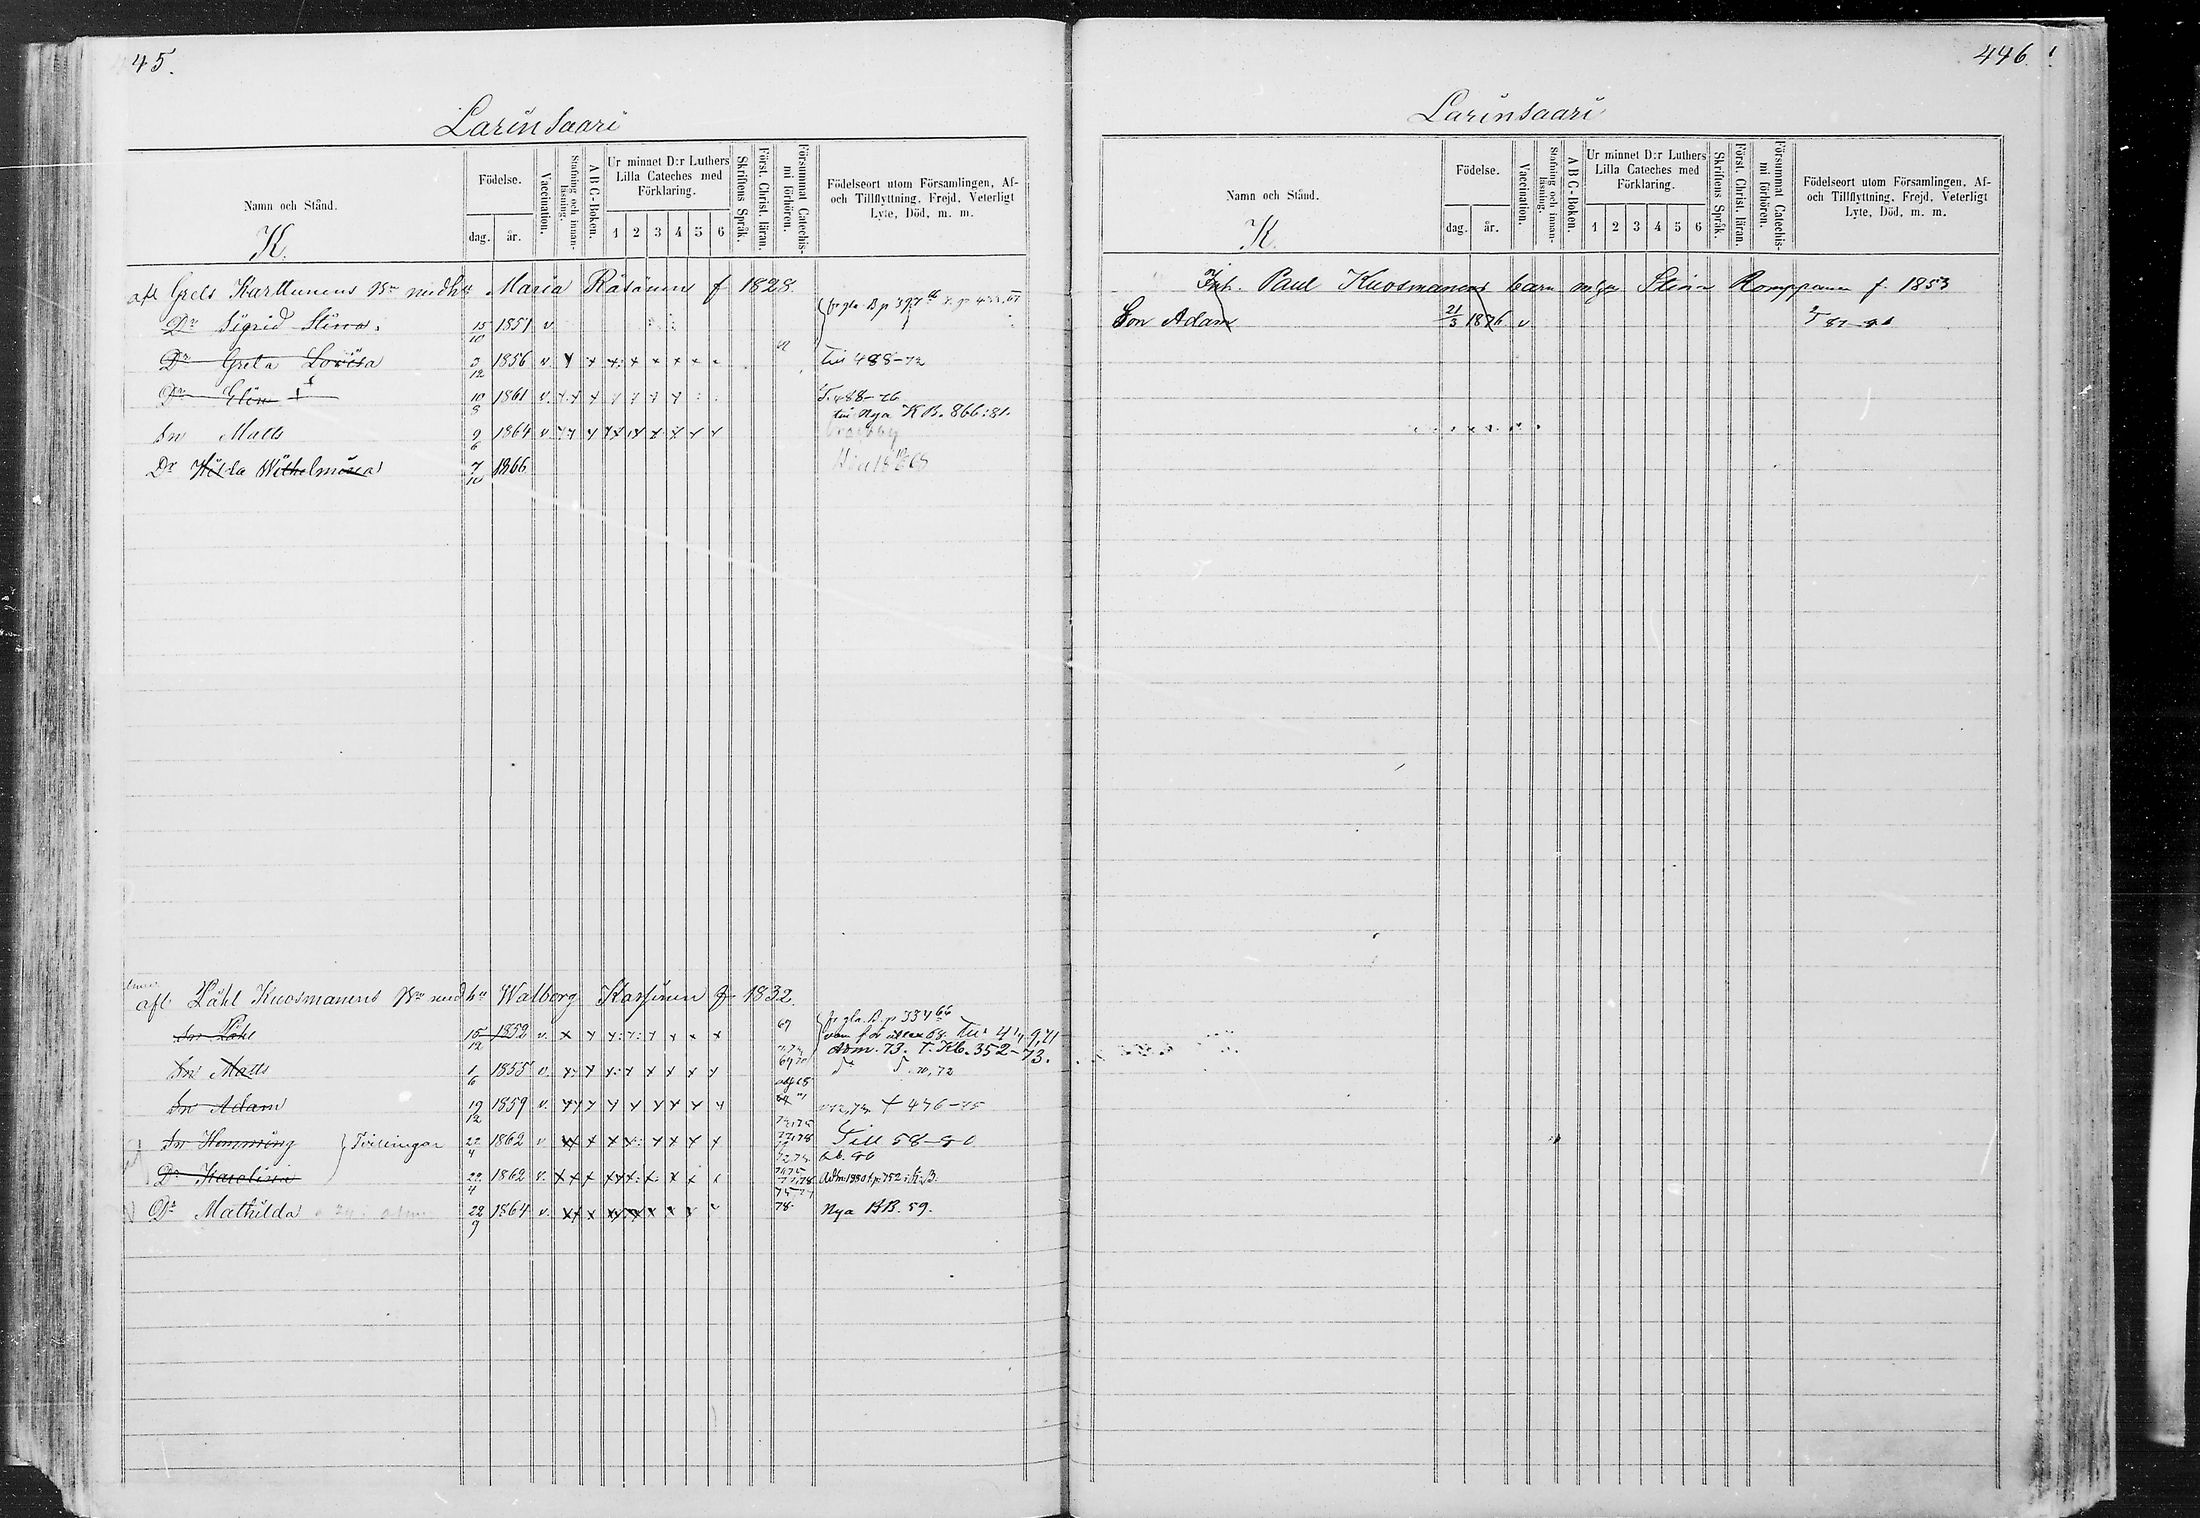 445.
Larinsaari
Namn och Stånd.
K.
Födelse.
dag. år.
Vaccination.
Stafning och innanläsning.
ABC-Boken.
Ur minnet D:r Luthers
Lilla Cateches med
Förklaring.
1 2 3 4 5 6
Skriftens Språk.
Först. Christ. läran.
Försummat Catechismi förhören.
Födelseort utom Församlingen, Af-
och Tillflyttning, Frejd, Veterligt
Lyte, Död, m. m.
afl Grels Karttunens Maria Räsänens f 1828
Dr Sigrid Stina 15/10 1851 v
Dr Greta Lovisa 3/12 1856 v. Till 488-72
Dr Elin 10/8 1861 v. T. 488-76
till Nya KB. 866:81.
Sn Matts 9/6 1864 v
Dr Hilda Wilhelmina 7/10 1866
afl Påhl Kuosmanens Walborg f 1832.
fr gla. B. p 334 66
Sn Påhl 15/12 1852 v. 69
Adm. 73. T. Kb. 352-73.
Sn Matts 1/6 1855 v.
Sn Adam 19/12 1859 v. + 476-75
Sn Hemming } Tvillingar 22/4 1862 v Till 58-80
Dr Karolina 22/4 1862 v.
Dr Mathilda 22/9 1864 v. 78 Nya BB. 59.
446
Larinsaari
Namn och Stånd.
K.
Födelse.
dag. år.
Vaccination.
Stafning och innanläsning.
ABC-Boken.
Ur minnet D:r Luthers
Lilla Cateches med
Förklaring.
1 2 3 4 5 6
Skriftens Språk.
Först. Christ. läran.
Försummat Catechismi förhören.
Födelseort utom Församlingen, Af-
och Tillflyttning, Frejd, Veterligt
Lyte, Död, m. m.
Inh. Paul Kuosmanens barn m/ga Stina Romppanen f. 1853
Son Adam 21/3 1876 v